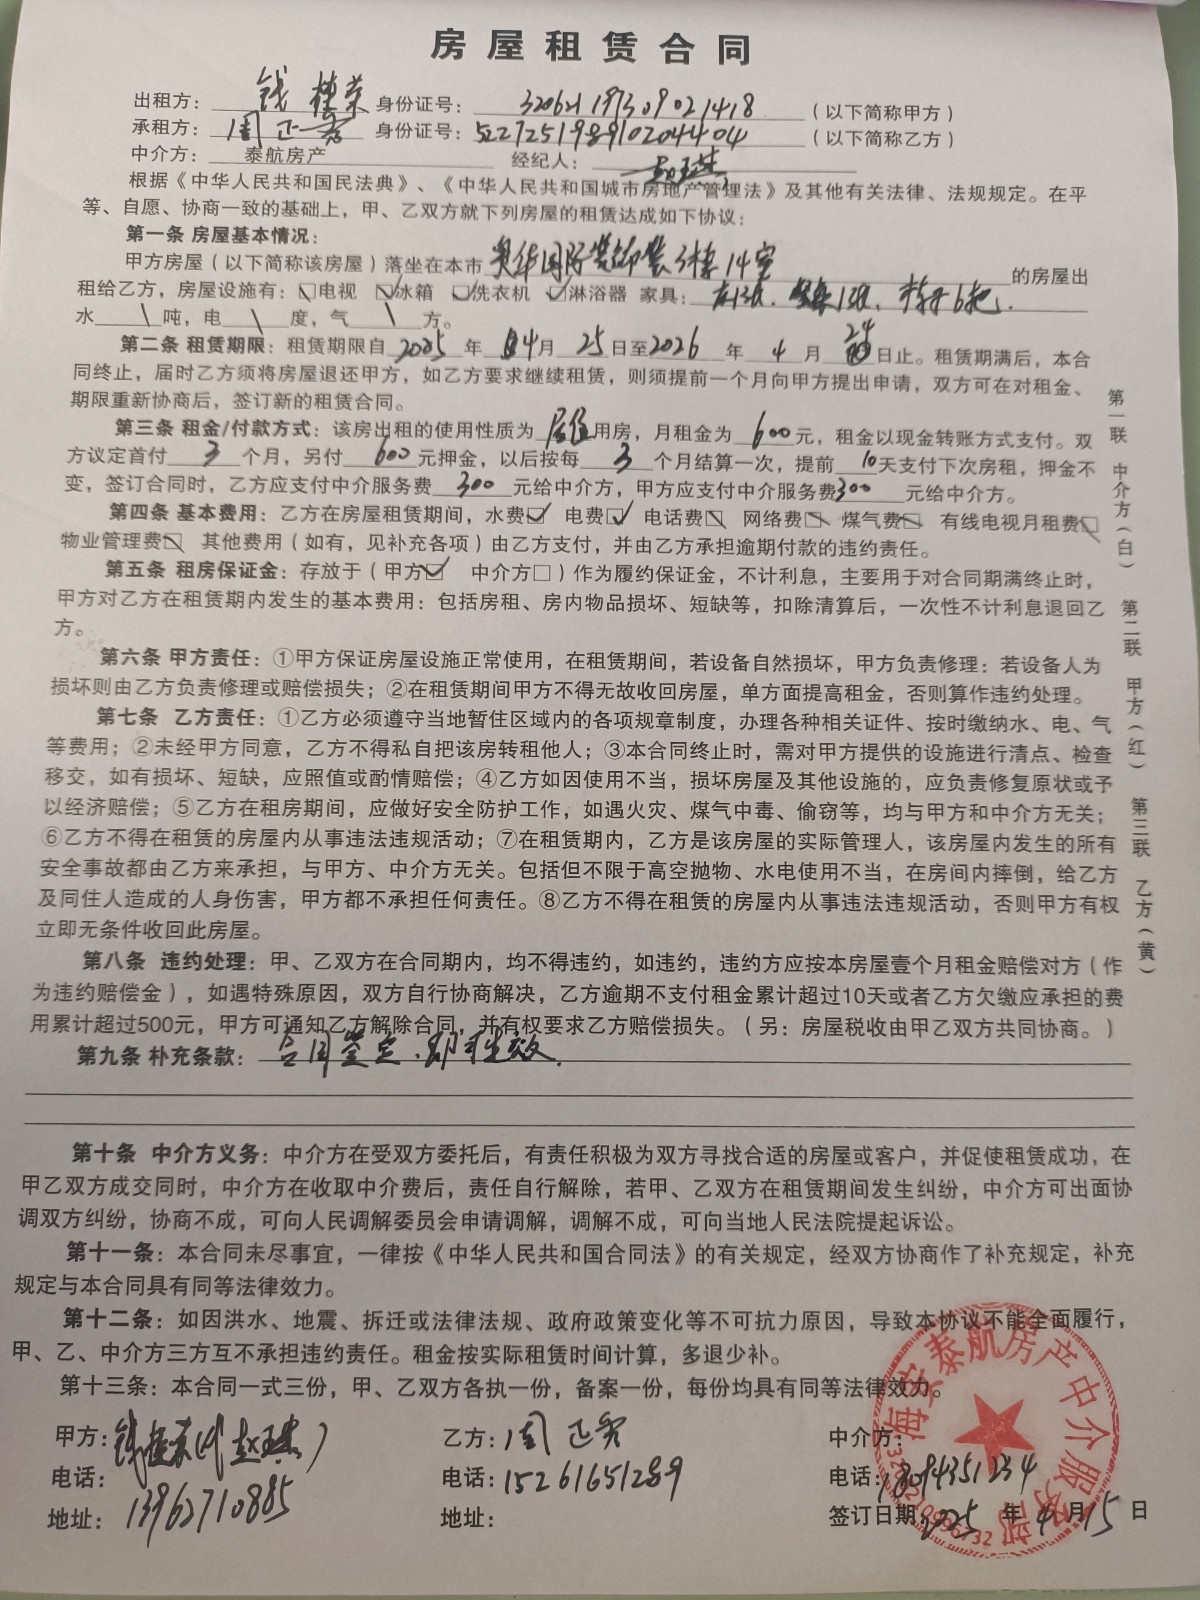 房屋租赁合同
出租方：钱桂荣 身份证号：320621197309021418（以下简称甲方）
承租方：周正 身份证号：522725198910204404（以下简称乙方）
中介方：泰航房产 经纪人：
根据《中华人民共和国民法典》、《中华人民共和国城市房地产管理法》及其他有关法律、法规规定。在平
等、自愿、协商一致的基础上，甲、乙双方就下列房屋的租赁达成如下协议：
第一条 房屋基本情况：
甲方房屋（以下简称该房屋）落坐在本市 国际装饰 14室 的房屋出
租给乙方，房屋设施有：☑电视 ☑冰箱 ☑洗衣机 ☑淋浴器 家具： 6把.
水 \ 吨，电 \ 度，气 \ 方。
第二条 租赁期限：租赁期限自2025年 4月25日至2026年4月24日止。租赁期满后，本合
同终止，届时乙方须将房屋退还甲方，如乙方要求继续租赁，则须提前一个月向甲方提出申请，双方可在对租金、
期限重新协商后，签订新的租赁合同。
第三条 租金/付款方式：该房出租的使用性质为居住用房，月租金为600元，租金以现金转账方式支付。双
方议定首付3个月，另付600元押金，以后按每3个月结算一次，提前10天支付下次房租，押金不
变，签订合同时，乙方应支付中介服务费300元给中介方，甲方应支付中介服务费300元给中介方。
第四条 基本费用：乙方在房屋租赁期间，水费☑ 电费☑ 电话费☐ 网络费☐ 煤气费☐ 有线电视月租费☐
物业管理费☐ 其他费用（如有，见补充各项）由乙方支付，并由乙方承担逾期付款的违约责任。
第五条 租房保证金：存放于（甲方☑ 中介方☐）作为履约保证金，不计利息，主要用于对合同期满终止时，
甲方对乙方在租赁期内发生的基本费用：包括房租、房内物品损坏、短缺等，扣除清算后，一次性不计利息退回乙
方。
第六条 甲方责任：①甲方保证房屋设施正常使用，在租赁期间，若设备自然损坏，甲方负责修理：若设备人为
损坏则由乙方负责修理或赔偿损失；②在租赁期间甲方不得无故收回房屋，单方面提高租金，否则算作违约处理。
第七条 乙方责任：①乙方必须遵守当地暂住区域内的各项规章制度，办理各种相关证件、按时缴纳水、电、气
等费用；②未经甲方同意，乙方不得私自把该房转租他人；③本合同终止时，需对甲方提供的设施进行清点、检查
移交，如有损坏、短缺，应照值或酌情赔偿；④乙方如因使用不当，损坏房屋及其他设施的，应负责修复原状或予
以经济赔偿；⑤乙方在租房期间，应做好安全防护工作，如遇火灾、煤气中毒、偷窃等，均与甲方和中介方无关；
⑥乙方不得在租赁的房屋内从事违法违规活动；⑦在租赁期内，乙方是该房屋的实际管理人，该房屋内发生的所有
安全事故都由乙方来承担，与甲方、中介方无关。包括但不限于高空抛物、水电使用不当，在房间内摔倒，给乙方
及同住人造成的人身伤害，甲方都不承担任何责任。⑧乙方不得在租赁的房屋内从事违法违规活动，否则甲方有权
立即无条件收回此房屋。
第八条 违约处理：甲、乙双方在合同期内，均不得违约，如违约，违约方应按本房屋壹个月租金赔偿对方（作
为违约赔偿金），如遇特殊原因，双方自行协商解决，乙方逾期不支付租金累计超过10天或者乙方欠缴应承担的费
用累计超过500元，甲方可通知乙方解除合同，并有权要求乙方赔偿损失。（另：房屋税收由甲乙双方共同协商。）
第九条 补充条款：合同签定，即可生效.
第十条 中介方义务：中介方在受双方委托后，有责任积极为双方寻找合适的房屋或客户，并促使租赁成功，在
甲乙双方成交同时，中介方在收取中介费后，责任自行解除，若甲、乙双方在租赁期间发生纠纷，中介方可出面协
调双方纠纷，协商不成，可向人民调解委员会申请调解，调解不成，可向当地人民法院提起诉讼。
第十一条：本合同未尽事宜，一律按《中华人民共和国合同法》的有关规定，经双方协商作了补充规定，补充
规定与本合同具有同等法律效力。
第十二条：如因洪水、地震、拆迁或法律法规、政府政策变化等不可抗力原因，导致本协议不能全面履行，
甲、乙、中介方三方互不承担违约责任。租金按实际租赁时间计算，多退少补。
第十三条：本合同一式三份，甲、乙双方各执一份，备案一份，每份均具有同等法律效力。
甲方：钱桂荣（代 赵 ） 乙方：周正 中介方：
电话：13962710885 电话：15261651289 电话：18094351234
地址： 地址： 签订日期：2025年4月15日
第一联 中介方（白） 第二联 甲方（红） 第三联 乙方（黄）
海安泰航房产中介服务部